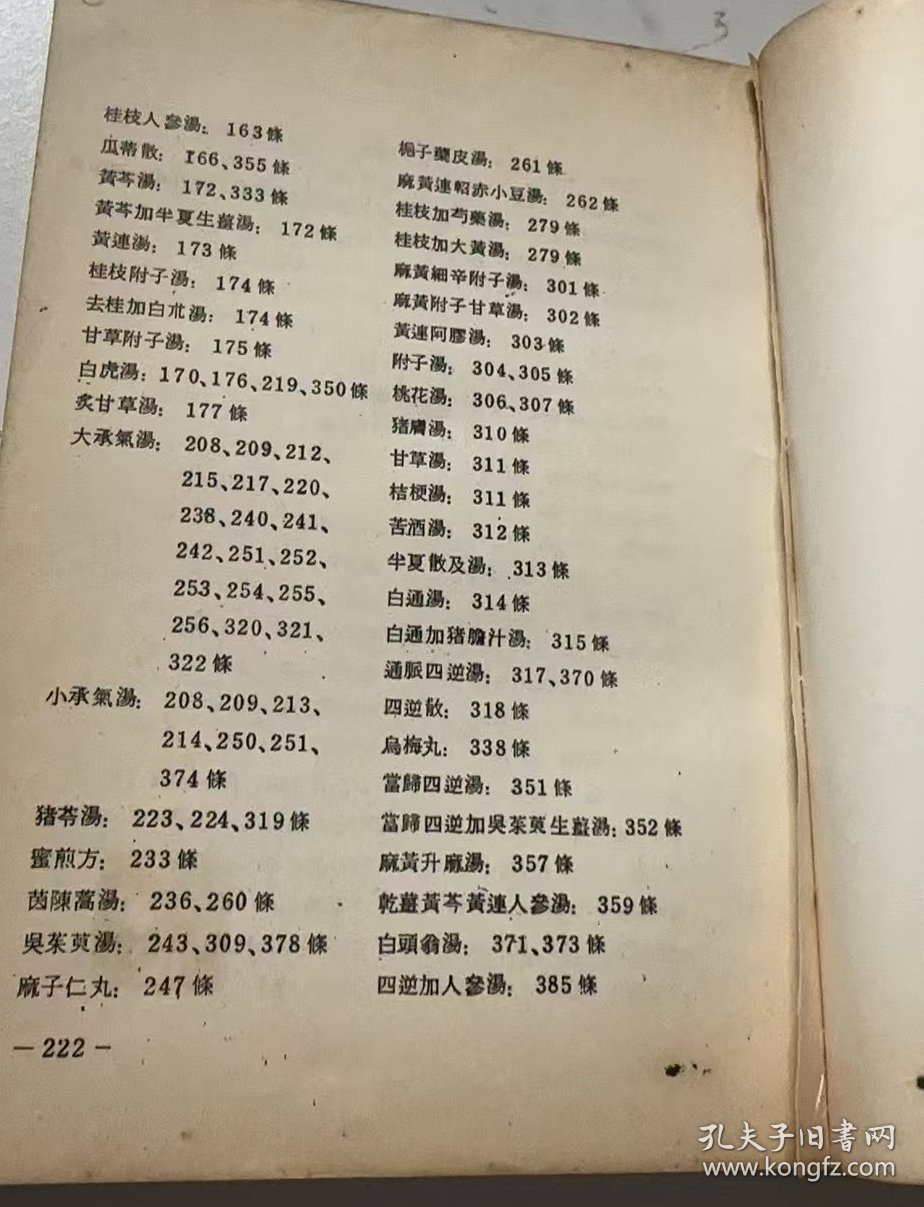 桂枝人參湯：163條
瓜蒂散：166、355條
黃芩湯：172、333條
黃芩加半夏生薑湯：172條
黃連湯：173條
桂枝附子湯：174條
去桂加白朮湯：174條
甘草附子湯：175條
白虎湯：170、176、219、350條
炙甘草湯：177條
大承氣湯：208、209、212、
215、217、220、
238、240、241、
242、251、252、
253、254、255、
256、320、321、
322條
小承氣湯：208、209、213、
214、250、251、
374條
猪苓湯：223、224、319條
蜜煎方：233條
茵陳蒿湯：236、260條
吳茱萸湯：243、309、378條
麻子仁丸：247條
梔子蘗皮湯：261條
麻黃連軺赤小豆湯：262條
桂枝加芍藥湯：279條
桂枝加大黃湯：279條
麻黃細辛附子湯：301條
麻黃附子甘草湯：302條
黃連阿膠湯：303條
附子湯：304、305條
桃花湯：306、307條
猪膚湯：310條
甘草湯：311條
桔梗湯：311條
苦酒湯：312條
半夏散及湯：313條
白通湯：314條
白通加猪膽汁湯：315條
通脈四逆湯：317、370條
四逆散：318條
烏梅丸：338條
當歸四逆湯：351條
當歸四逆加吳茱萸生薑湯：352條
麻黃升麻湯：357條
乾薑黃芩黃連人參湯：359條
白頭翁湯：371、373條
四逆加人參湯：385條
— 222 —
孔夫子旧書网
www.kongfz.com